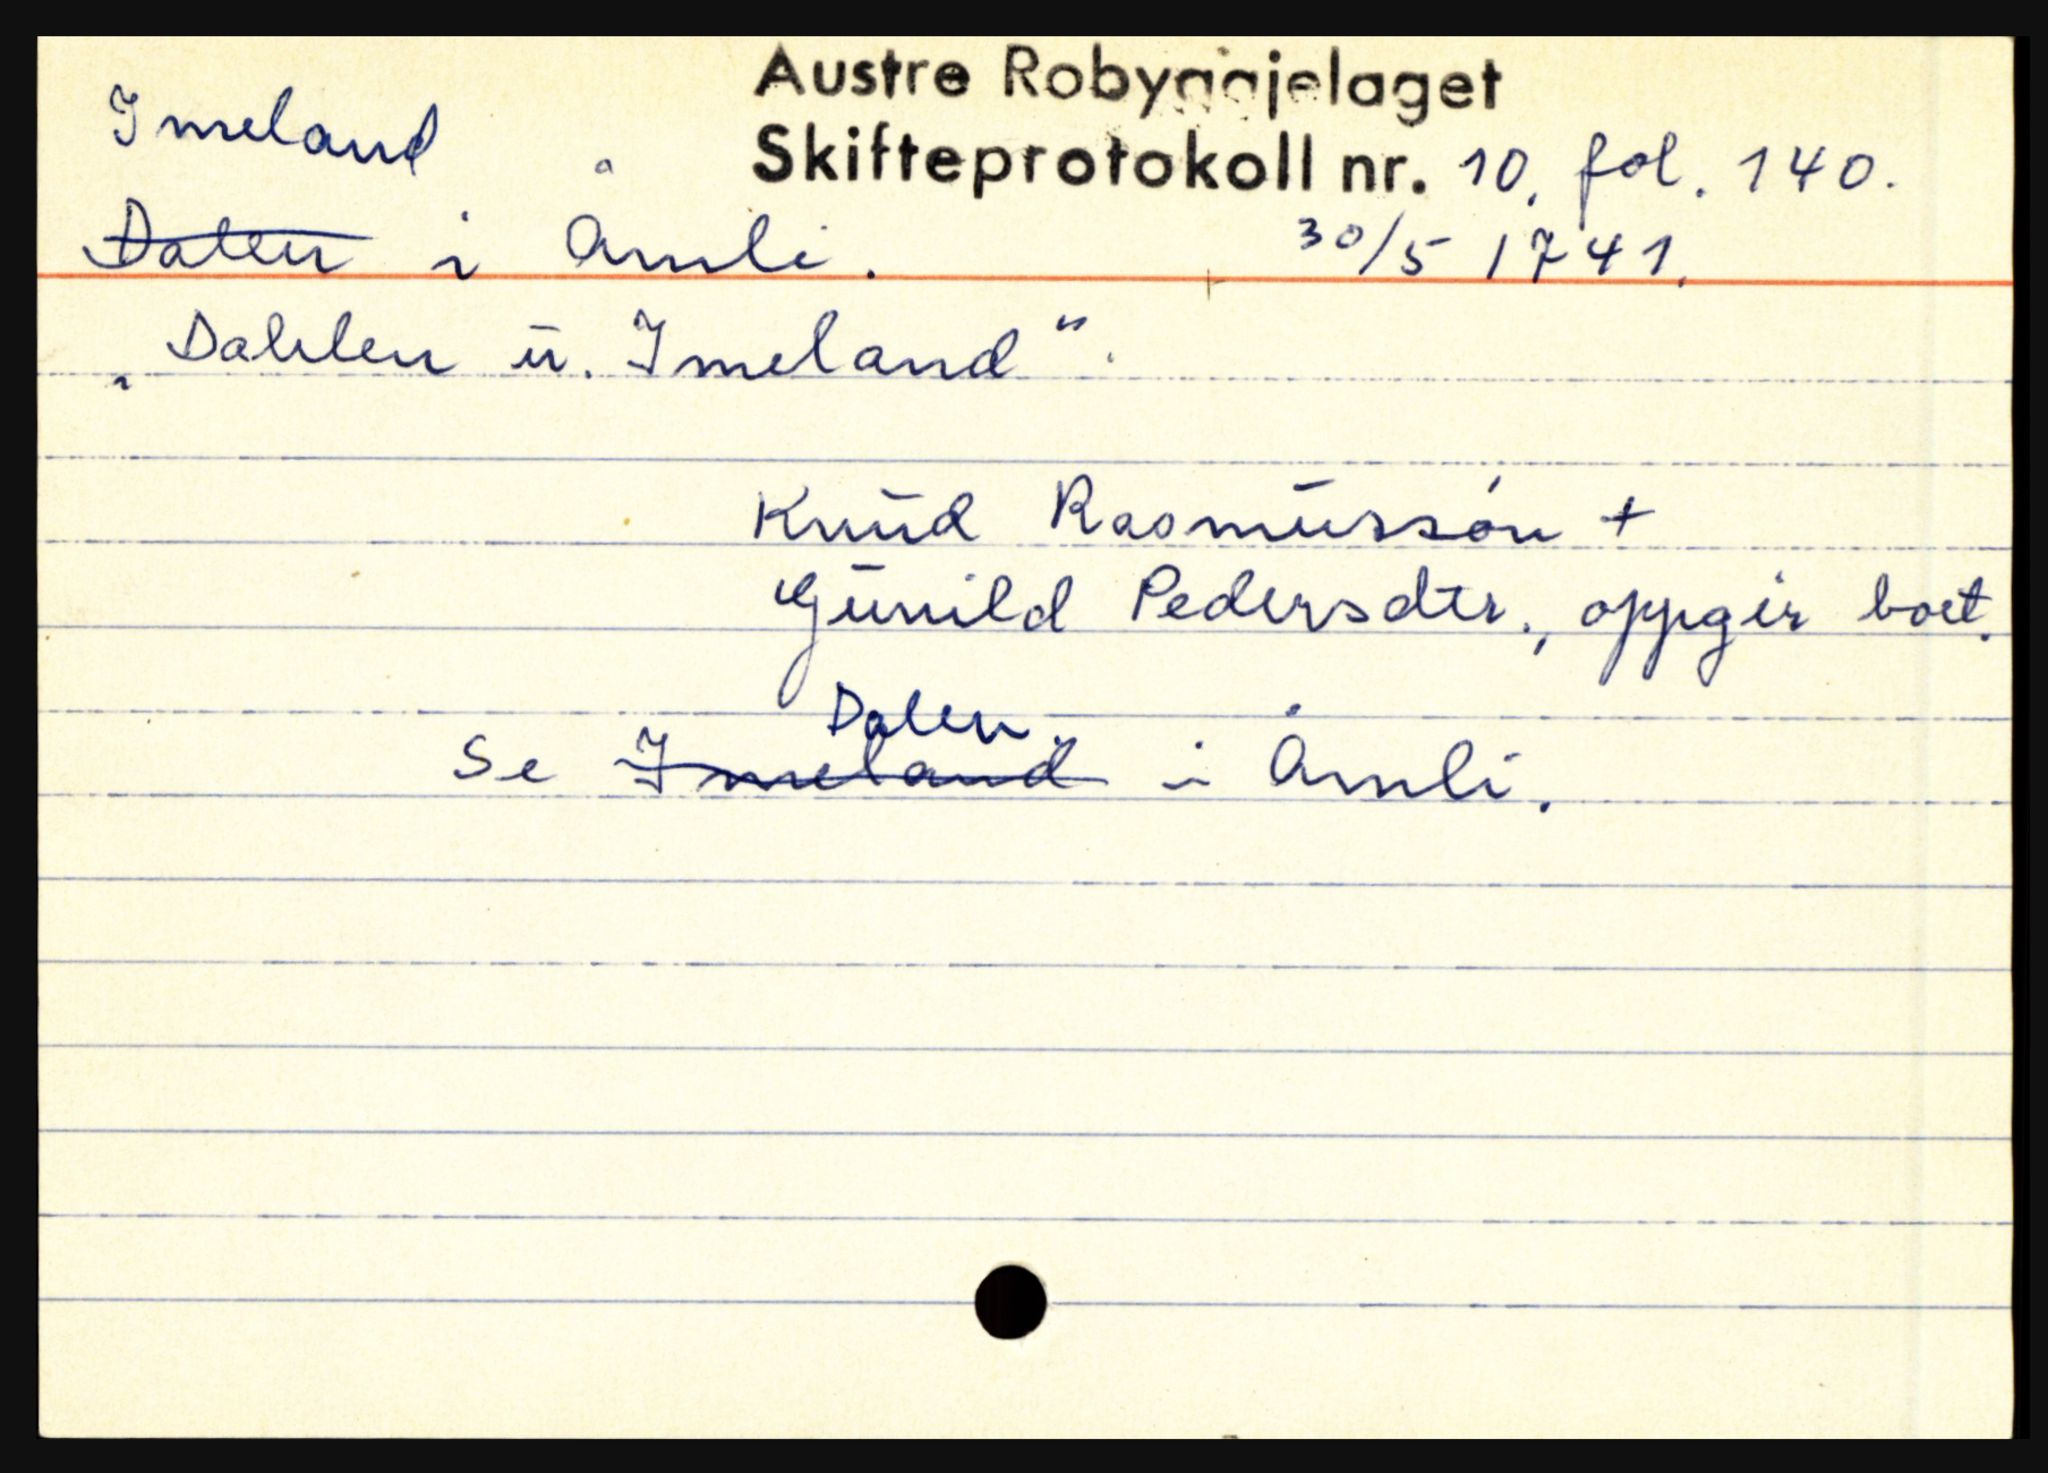 Austre Robyggjelaget
Imeland
Skifteprotokoll nr. 10. fol. 140.
Dalen i Åmli.
30/5 1741.
„Dahlen u. Imeland“.
Knud Rasmussøn +
Gunild Pedersdtr., oppgir boet.
Dalen.
Se Imeland i Åmli.